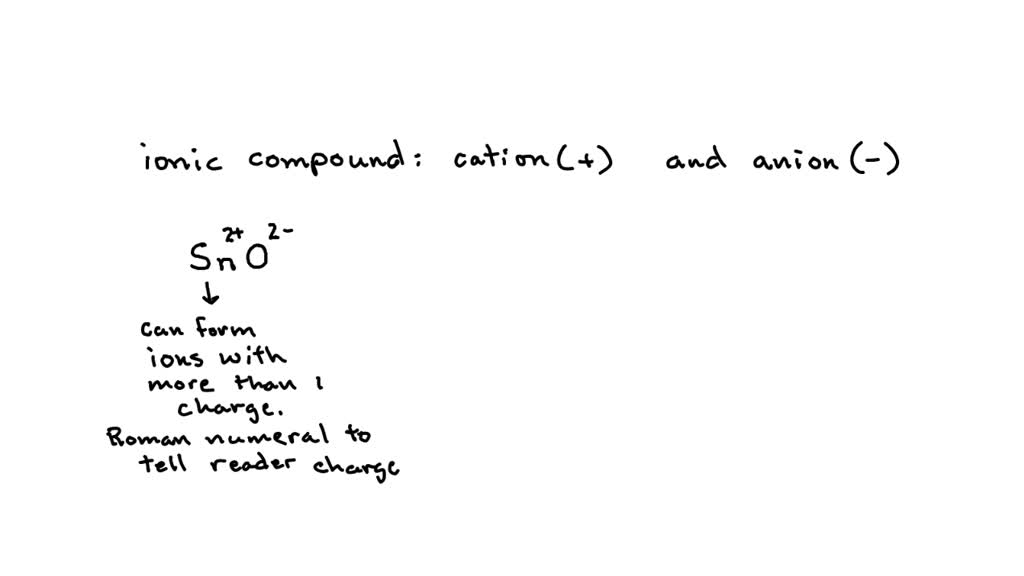 ionic compound: cation (+) and anion (-)
Sn²⁺O²⁻
↓
can form
ions with
more than 1
charge.
Roman numeral to
tell reader charge